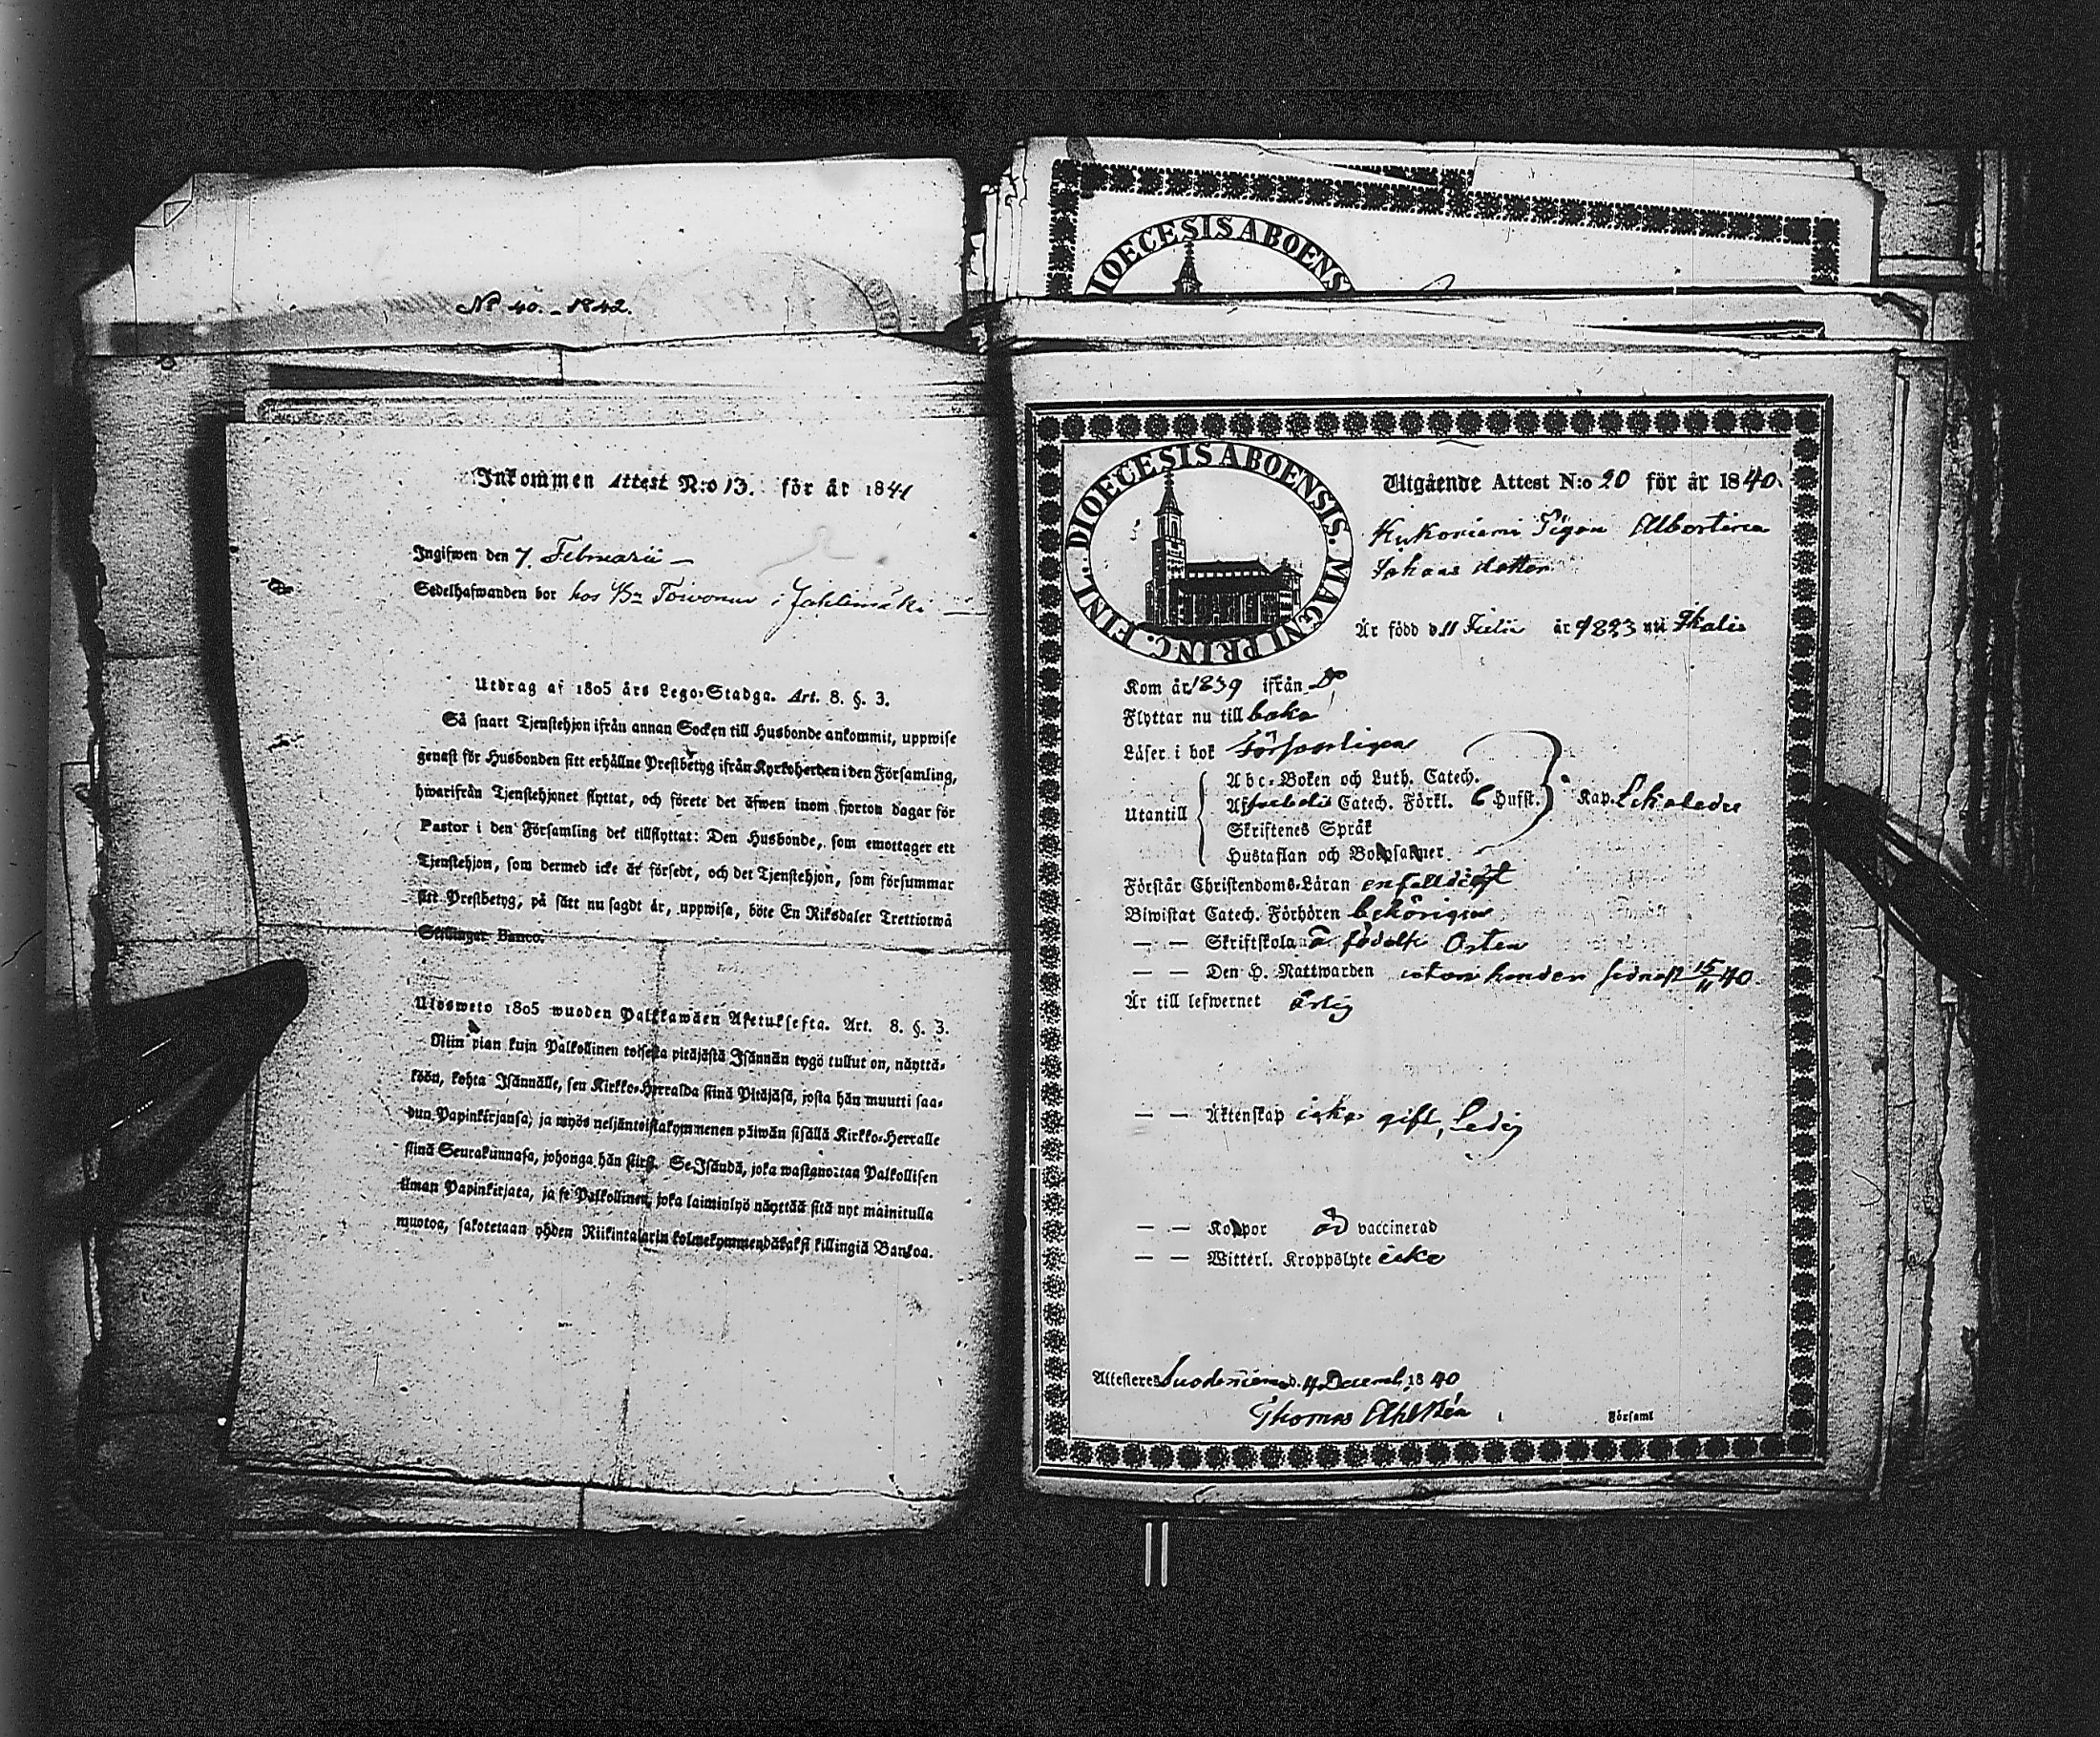 No 40. - 1842.
Inkommen Attest N:o 13. för år 1841
Ingifwen den 7. Februarii —
Sedelhafwanden bor hos Bn Toivonen i Jahlimäki —
Utdrag af 1805 års Lego-Stadga. Art. 8. §. 3.
Så snart Tjenstehjon ifrån annan Socken till Husbonde ankommit, uppwise
genast för Husbonden sitt erhållne Prestbetyg ifrån Kyrkoherden i den Församling,
hwarifrån Tjenstehjonet flyttat, och förete det äfwen inom fjorton dagar för
Pastor i den Församling det tillflyttat: Den Husbonde, som emottager ett
Tjenstehjon, som dermed icke är försedt, och det Tjenstehjon, som försummar
sitt Prestbetyg, på sätt nu sagdt är, uppwisa, böte En Riksdaler Trettiotwå
Skillingar Banco.
Ulosweto 1805 wuoden Palkkawäen Asetuksesta. Art. 8. §. 3.
Niin pian kuin Palkollinen toisesta pitäjästä Isännän tygö tullut on, näyttä-
köön, kohta Isännälle, sen Kirkko-Herralda siinä Pitäjäsä, josta hän muutti saa-
dun Papinkirjansa; ja myös neljäntoistakymmenen päiwän sisällä Kirkko-Herralle
siinä Seurakunnasa, johonga hän siirsi. Se Isändä, joka wastanottaa Palkollisen
ilman Papinkirjata, ja se Palkollinen, joka laiminlyö näyttää sitä nyt mainitulla
muotoa, sakotetaan yhden Riikintalarin kolmekymmendäkaksi killingiä Bankoa.
DIOECESIS ABOENS
DIOECESIS ABOENSIS. MAGNI PRINC. FINL.
Utgående Attest N:o 20 för år 1840.
Pigan Albertina
Johans dotter
Är född d. 11 Julii år 1823 uti Ikalis
Kom år 1839 ifrån Do
Flyttar nu till baka
Läser i bok Försvarligen
Utantill
Abc-Boken och Luth. Catech.
Catech. Förkl. 6 Hufst.
Skriftenes Språk
Hustaflan och Botpsalmer.
Kap.
Förstår Christendoms-Läran enfaldigt
Biwistat Catech. Förhören behörigen
— — Skriftskola å födelse Orten
— — Den H. Nattwarden sednast 15/11 40.
Är till lefwernet ärlig
— — Äktenskap icke gift, Ledig
— — Koppor är vaccinerad
— — Witterl. Kroppslyte icke
Attesteres Suodeniemi d. 4 Decemb. 1840
Thomas Ahlstén
Församl